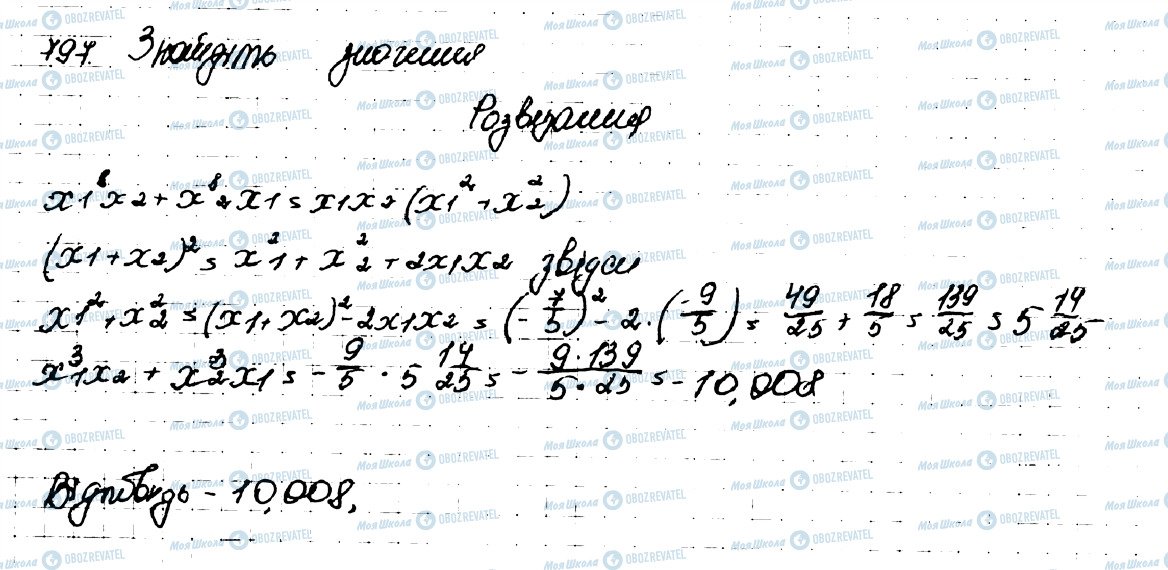 797. Знайдіть значення
Розв'язання
x1³x2 + x³2x1 = x1x2 (x1² + x2²)
(x1 + x2)² = x²1 + x²2 + 2x1x2 звідси
x1² + x2² = (x1 + x2)² - 2x1x2 = (-7/5)² - 2·(-9/5) = 49/25 + 18/5 = 139/25 = 5 14/25
x³1x2 + x³2x1 = -9/5 · 5 14/25 = -9·139/5·25 = -10,008
Відповідь - 10,008,